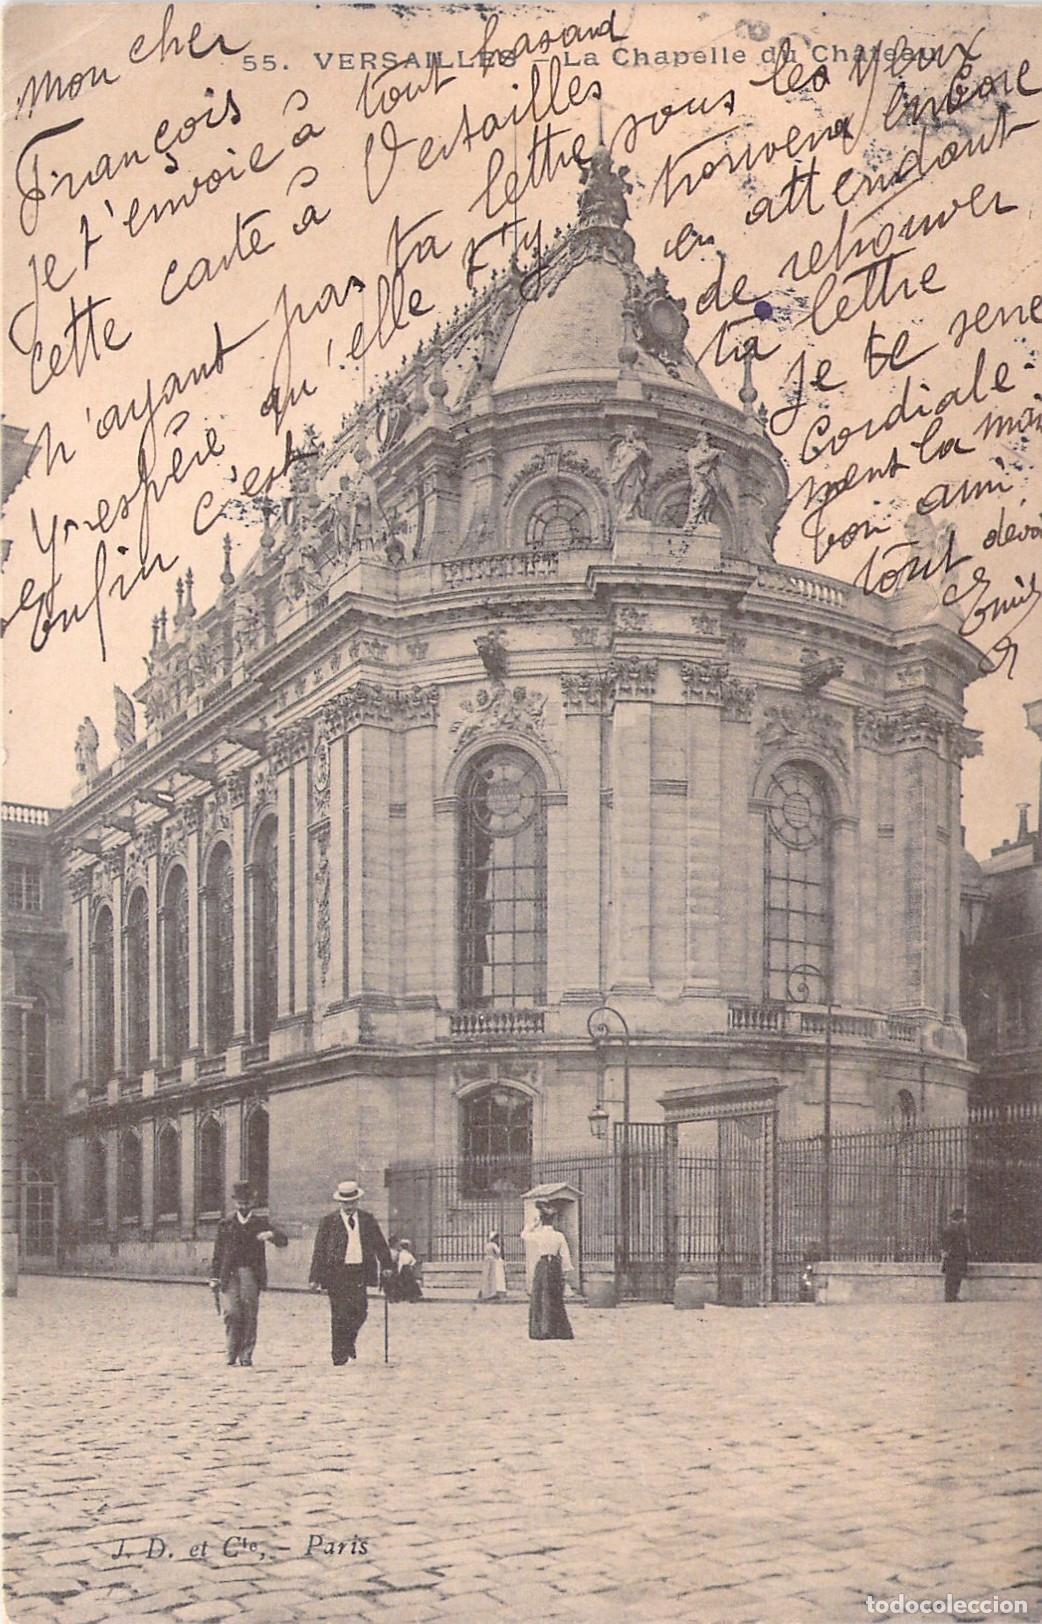 55. VERSAILLES - La Chapelle du Château
mon cher
François
je t'envoie à tout hasard
cette carte à Versailles
n'ayant pas ta lettre sous les yeux
j'espère qu'elle t'y trouvera encore
enfin c'est en attendant
de retrouver
ta lettre
je te serre
Cordiale-
ment la main
bon ami
tout
J. D. et Cie, - Paris
todocoleccion